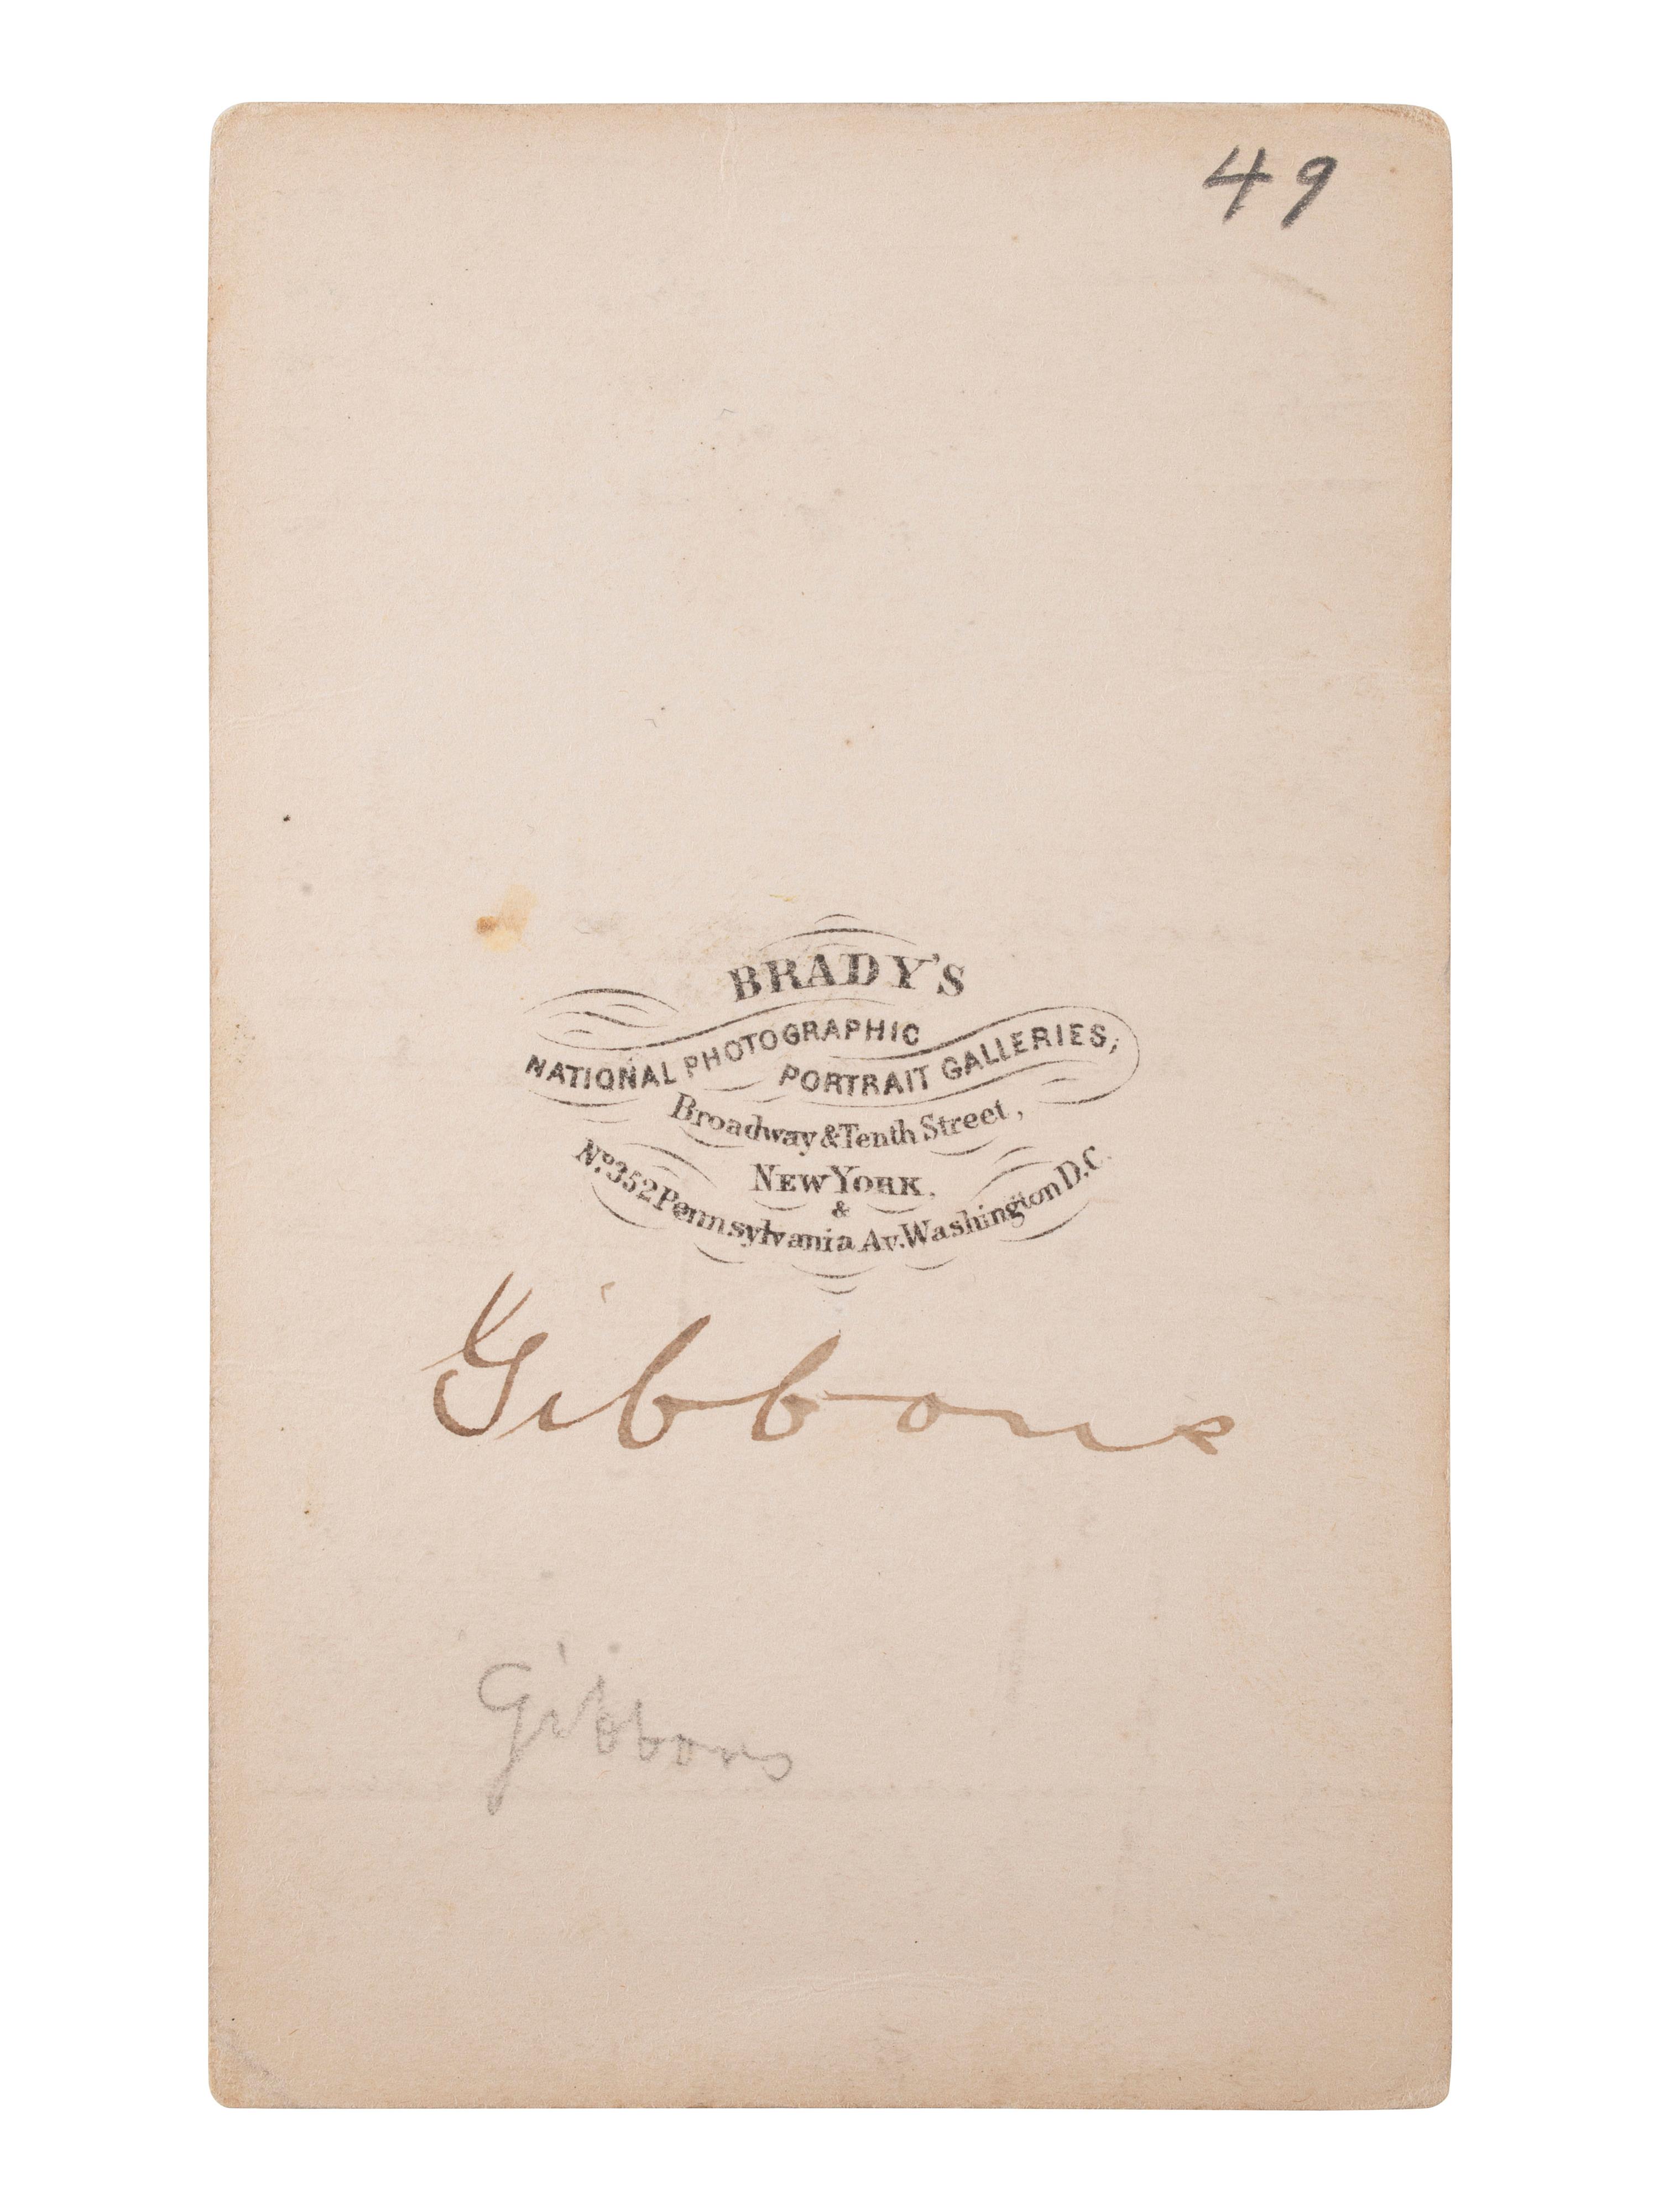 49
BRADY'S
NATIONAL PHOTOGRAPHIC
PORTRAIT GALLERIES,
Broadway & Tenth Street,
NEW YORK.
&
No. 352 Pennsylvania Av. Washington D.C.
Gibbons
Gibbons